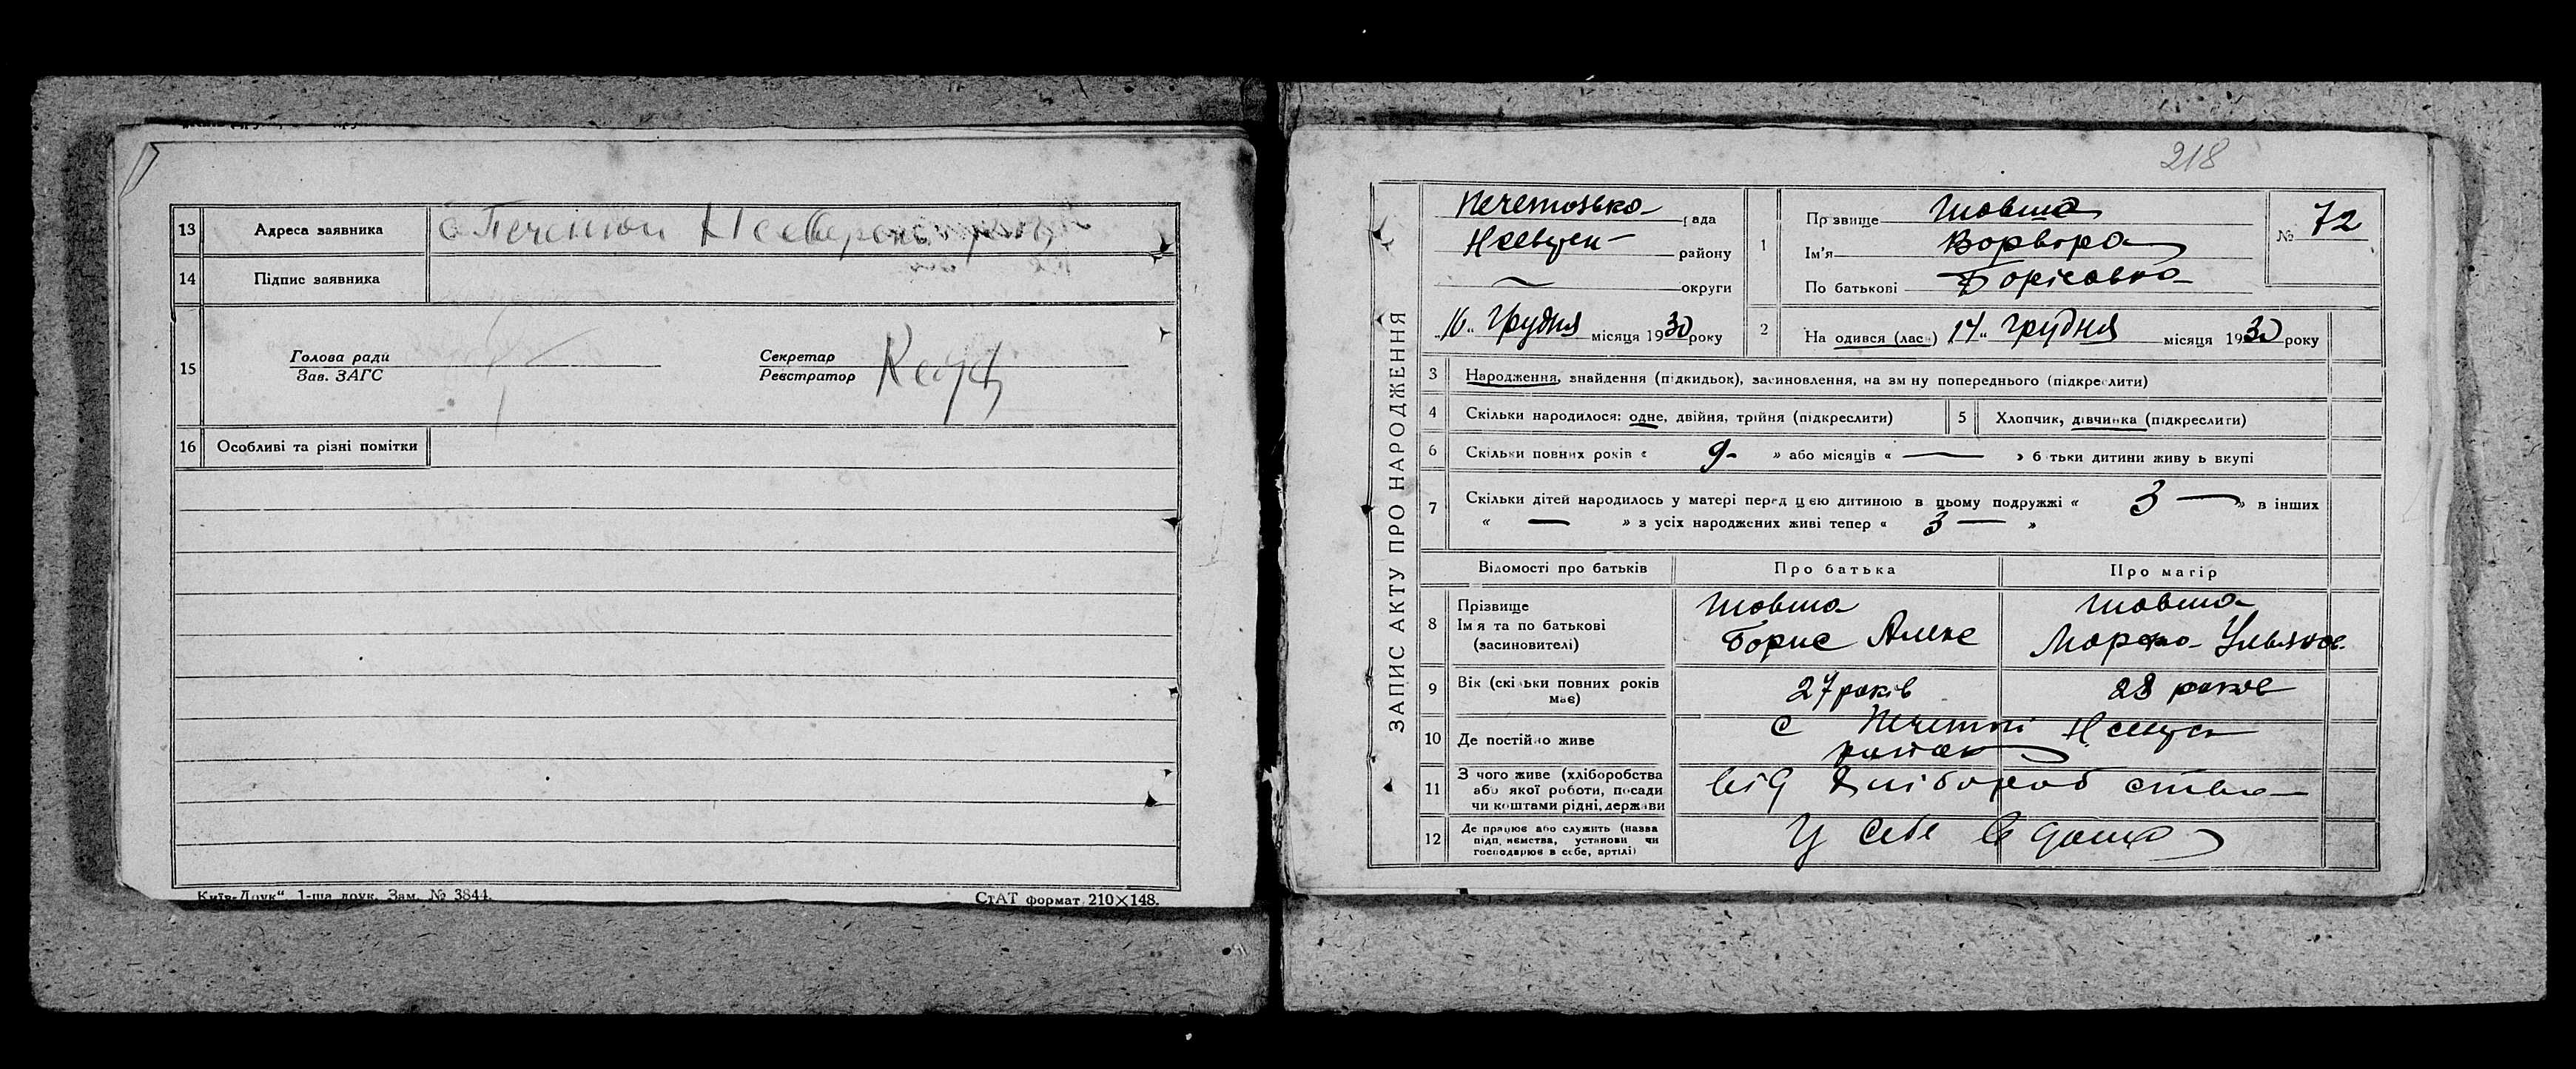 13 Адреса заявника с Печеной
14 Підпис заявника
15 Голова ради
Зав. ЗАГС
Секретар
Реєстратор
16 Особливі та різні помітки
Київ-Друк“ 1-ша друк. Зам. № 3844.
СтАТ формат 210×148.
218
ЗАПИС АКТУ ПРО НАРОДЖЕННЯ
рада
району
округи
„16“ Грудня місяця 1930 року
1 Прізвище Шовша
Ім'я Ворвора
По батькові Борісовна
№ 72
2 На одився (лась) 14“ грудня місяця 1930 року
3 Народження, знайдення (підкидьок), засиновлення, на зміну попереднього (підкреслити)
4 Скільки народилося: одне, двійня, трійня (підкреслити)
5 Хлопчик, дівчинка (підкреслити)
6 Скільки повних років « 9 - » або місяців « — » батьки дитини живуть вкупі
7 Скільки дітей народилось у матері перед цією дитиною в цьому подружжі « 3 — » в інших
« — » з усіх народжених живі тепер « 3 — »
Відомості про батьків
Про батька
Про матір
8 Прізвище
Ім'я та по батькові
(засиновителі)
Шовша
Борис Алекс
Шовша
9 Вік (скільки повних років має)
27 років
28 років
10 Де постійно живе
с
11 З чого живе (хліборобства
або якої роботи, посади
чи коштами рідні, держави
від Хліборобства
12 Де працює або служить (назва
підприємства, установи чи
господарює в себе, артілі)
У себе в дома